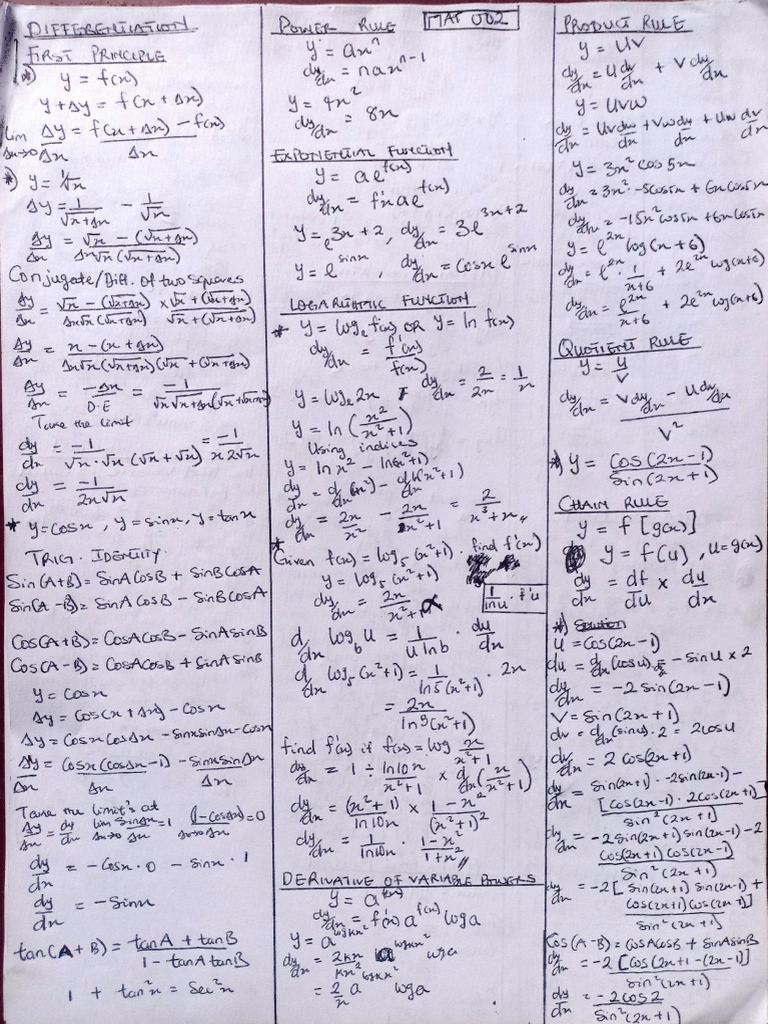 DIFFERENTIATION
FIRST PRINCIPLE
*) y = f(x)
y + Δy = f(x + Δx)
lim Δx→0 Δy/Δx = f(x + Δx) - f(x) / Δx
*) y = 1/√x
Δy = 1/√x+Δx - 1/√x
Δy/Δx = √x - (√x+Δx) / Δx√x(√x+Δx)
Conjugate/Diff. of two squares
Δy/Δx = √x - (√x+Δx) / Δx√x(√x+Δx) × √x + (√x+Δx) / √x + (√x+Δx)
Δy/Δx = x - (x + Δx) / Δx√x(√x+Δx)(√x + √x+Δx)
Δy/Δx = -Δx / D.E = -1 / √x√x+Δx(√x+√x+Δx)
Take the Limit
dy/dx = -1 / √x·√x(√x+√x) = -1 / x2√x
dy/dx = -1 / 2x√x
* y = cosx, y = sinx, y = tanx
TRIG. IDENTITY
Sin(A+B) = SinACosB + SinBCosA
Sin(A-B) = SinACosB - SinBCosA
Cos(A+B) = CosACosB - SinASinB
Cos(A-B) = CosACosB + SinASinB
y = Cosx
Δy = Cos(x + Δx) - Cosx
Δy = CosxCosΔx - SinxSinΔx - Cosx
Δy/Δx = Cosx(CosΔx - 1) / Δx - SinxSinΔx / Δx
Take the limit's at
Δy/Δx = dy/dx lim Δx→0 SinΔx/Δx = 1 (1-CosΔx) / Δx→Δx = 0
dy/dx = -Cosx·0 - Sinx·1
dy/dx = -Sinx
tan(A+B) = tanA + tanB / 1 - tanAtanB
1 + tan²x = Sec²x
POWER RULE
MAT 002
y = axⁿ
dy/dx = naxⁿ⁻¹
y = 4x²
dy/dx = 8x
EXPONENTIAL FUNCTION
y = ae^f(x)
dy/dx = f'x ae^f(x)
y = e^3x+2, dy/dx = 3e^3x+2
y = e^sinx, dy/dx = Cosx e^sinx
LOGARITHMIC FUNCTION
* y = logₑf(x) OR y = ln f(x)
dy/dx = f'(x) / f(x)
y = logₑ2x dy/dx = 2/2x = 1/x
y = ln(x² / x²+1)
Using indices
y = lnx² - ln(x²+1)
dy/dx = d/dx(x²) - d/dx(x²+1)
dy/dx = 2x/x² - 2x/x²+1 = 2/x³+x
* Given f(x) = log₅(x²+1). find f'(x)
y = log₅(x²+1)
dy/dx = 2x / x²+1
1/lnu · f'u
d/dx log_b u = 1/u ln b · du/dx
d/dx log₅(x²+1) = 1/ln5(x²+1) · 2x
= 2x / ln5(x²+1)
find f'(x) if f(x) = log x/x²+1
dy/dx = 1 ÷ ln10x / x²+1 × d/dx(x/x²+1)
dy/dx = (x²+1) / ln10x × 1-x² / (x²+1)²
dy/dx = 1/ln10x · 1-x² / 1+x²
DERIVATIVE OF VARIABLE POWERS
y = a^f(x)
dy/dx = f'(x) a^f(x) loga
y = a^logkx²
dy/dx = 2kx/kx² a^logkx² loga
= 2/x a^logkx² loga
PRODUCT RULE
y = UV
dy/dx = U dv/dx + V du/dx
y = UVW
dy/dx = UV dw/dx + VW du/dx + UW dv/dx
y = 3x² cos5x
dy/dx = 3x²·-5Cos5x + 6xCos5x
dy/dx = -15x²Cos5x + 6xCos5x
y = e^2x log(x+6)
dy/dx = e^2x · 1/x+6 + 2e^2x log(x+6)
dy/dx = e^2x / x+6 + 2e^2x log(x+6)
QUOTIENT RULE
y = U/V
dy/dx = V du/dx - U dv/dx / V²
*) y = COS(2x-1) / Sin(2x+1)
CHAIN RULE
y = f[g(x)]
y = f(u), u = g(x)
dy/dx = df/du × du/dx
*) Solution
U = cos(2x-1)
du = d/dx(cosu) = -Sinu × 2
dy/dx = -2Sin(2x-1)
V = Sin(2x+1)
dv = d/dx(sinu)·2 = 2cosu
dv/dx = 2cos(2x+1)
dy/dx = Sin(2x+1)·-2Sin(2x-1) - [Cos(2x-1)·2Cos(2x+1)] / Sin²(2x+1)
dy/dx = -2Sin(2x+1)Sin(2x-1) - 2Cos(2x+1)Cos(2x-1) / Sin²(2x+1)
dy/dx = -2[Sin(2x+1)Sin(2x-1) + Cos(2x+1)Cos(2x-1)] / Sin²(2x+1)
Cos(A-B) = CosACosB + SinASinB
dy/dx = -2[Cos(2x+1-(2x-1)] / Sin²(2x+1)
dy/dx = -2Cos2 / Sin²(2x+1)